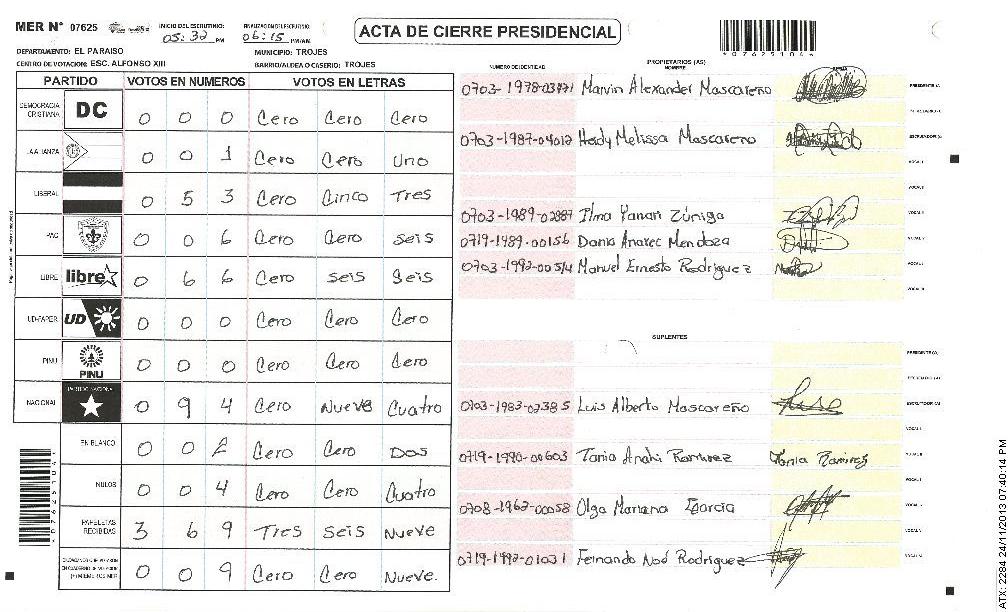 MER N° 07625
INICIO DEL ESCRUTINIO: 05:32 PM
FINALIZACION DEL ESCRUTINIO: 06:15 PM/AM
ACTA DE CIERRE PRESIDENCIAL
*07625104*
DEPARTAMENTO: EL PARAISO
MUNICIPIO: TROJES
CENTRO DE VOTACION: ESC. ALFONSO XIII
BARRIO/ALDEA O CASERIO: TROJES
PARTIDO VOTOS EN NUMEROS VOTOS EN LETRAS
DEMOCRACIA CRISTIANA DC 0 0 0 Cero Cero Cero
LA ALIANZA 0 0 1 Cero Cero Uno
LIBERAL 0 5 3 Cero Cinco Tres
PAC 0 0 6 Cero Cero Seis
LIBRE libre 0 6 6 Cero Seis Seis
UD-FAPER UD 0 0 0 Cero Cero Cero
PINU PINU 0 0 0 Cero Cero Cero
NACIONAL PARTIDO NACIONAL 0 9 4 Cero Nueve Cuatro
EN BLANCO 0 0 2 Cero Cero Dos
NULOS 0 0 4 Cero Cero Cuatro
PAPELETAS RECIBIDAS 3 6 9 Tres Seis Nueve
0 0 9 Cero Cero Nueve.
*07625104*
NUMERO DE IDENTIDAD
PROPIETARIOS (AS)
NOMBRE
FIRMA
0703-1978-03771 Marvin Alexander Mascareño PRESIDENTE (A)
0703-1987-04012 Heidy Melissa Mascareño ESCRUTADOR (A)
VOCAL I
0703-1989-02887 Ilma Yanari Zúniga
0719-1989-00156 Dania Anarec Mendoza
0703-1992-00514 Manuel Ernesto Rodriguez
SUPLENTES
PRESIDENTE (A)
SECRETARIO (A)
0703-1983-02385 Luis Alberto Mascareño ESCRUTADOR (A)
VOCAL I
0719-1990-00603 Tania Anahi Ramirez Tania Ramirez
0708-1962-00058 Olga Mariana Garcia
0719-1992-01031 Fernando Noé Rodriguez
ATX: 2284 24/11/2013 07:40:14 PM